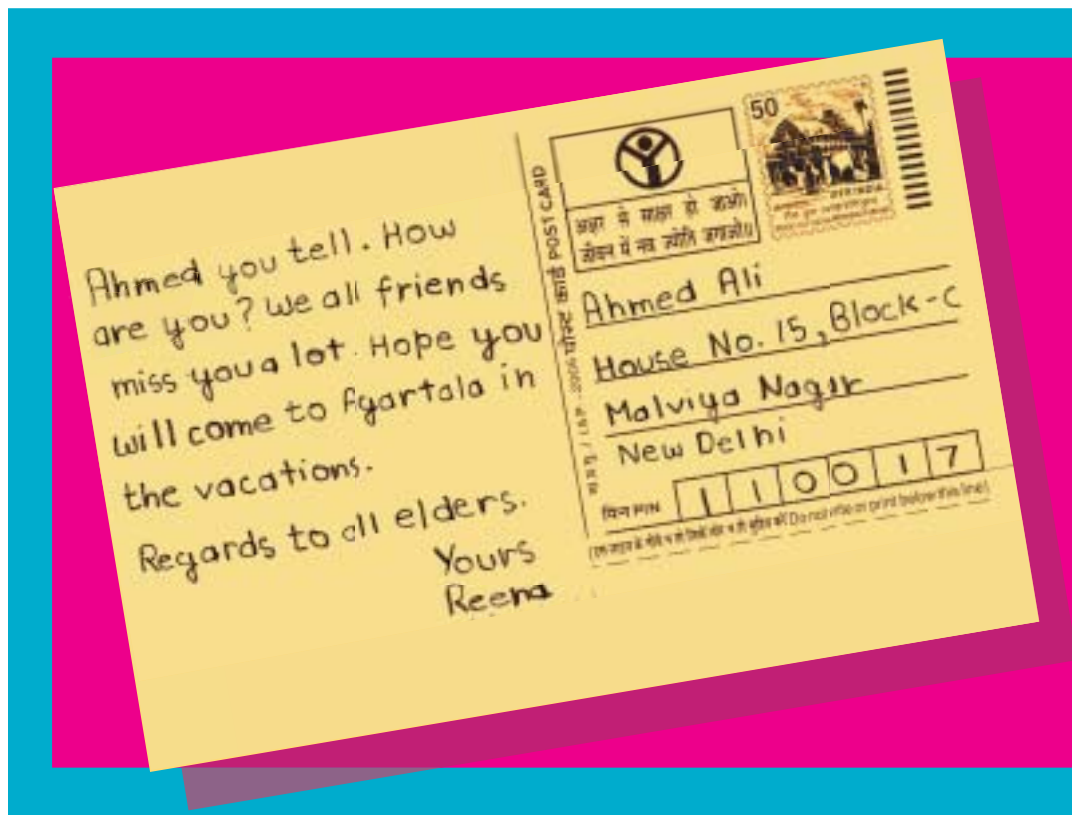 Ahmed you tell. How
are you? We all friends
miss you a lot. Hope you
will come to Agartala in
the vacations.
Regards to all elders.
Yours
Reena
पोस्ट कार्ड POST CARD
50
अक्षर से साक्षर हो जाओ।
जीवन में नव ज्योति जगाओ॥
Ahmed Ali
House No. 15, Block-C
Malviya Nagar
New Delhi
पिन PIN 110017
(इस लाइन के नीचे न तो लिखें और न ही मुद्रित करें Do not write or print below this line)